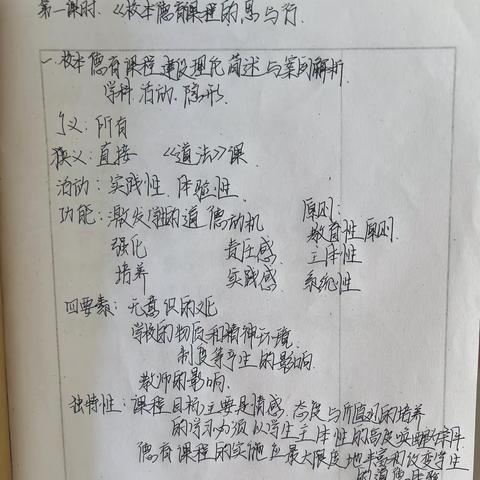 第一课时.《校本德育课程的思与行.
一.校本德育课程建设理论简述与案例解析.
学科 活动.隐形.
广义:所有
狭义:直接 《道法》课.
活动:实践性.体验性.
功能:激发学生的道德动机 原则:
教育性原则.
强化 责任感. 主体性.
培养 实践感. 系统性
四要素:无意识的文化
学校的物质和精神环境.
制度等产生的影响.
教师的影响.
独特性:课程目标主要是情感.态度与价值观的培养
的学习必须以学生主体性的高度唤醒
德育课程的实施应最大限度地丰富和改变学生
的道德体验